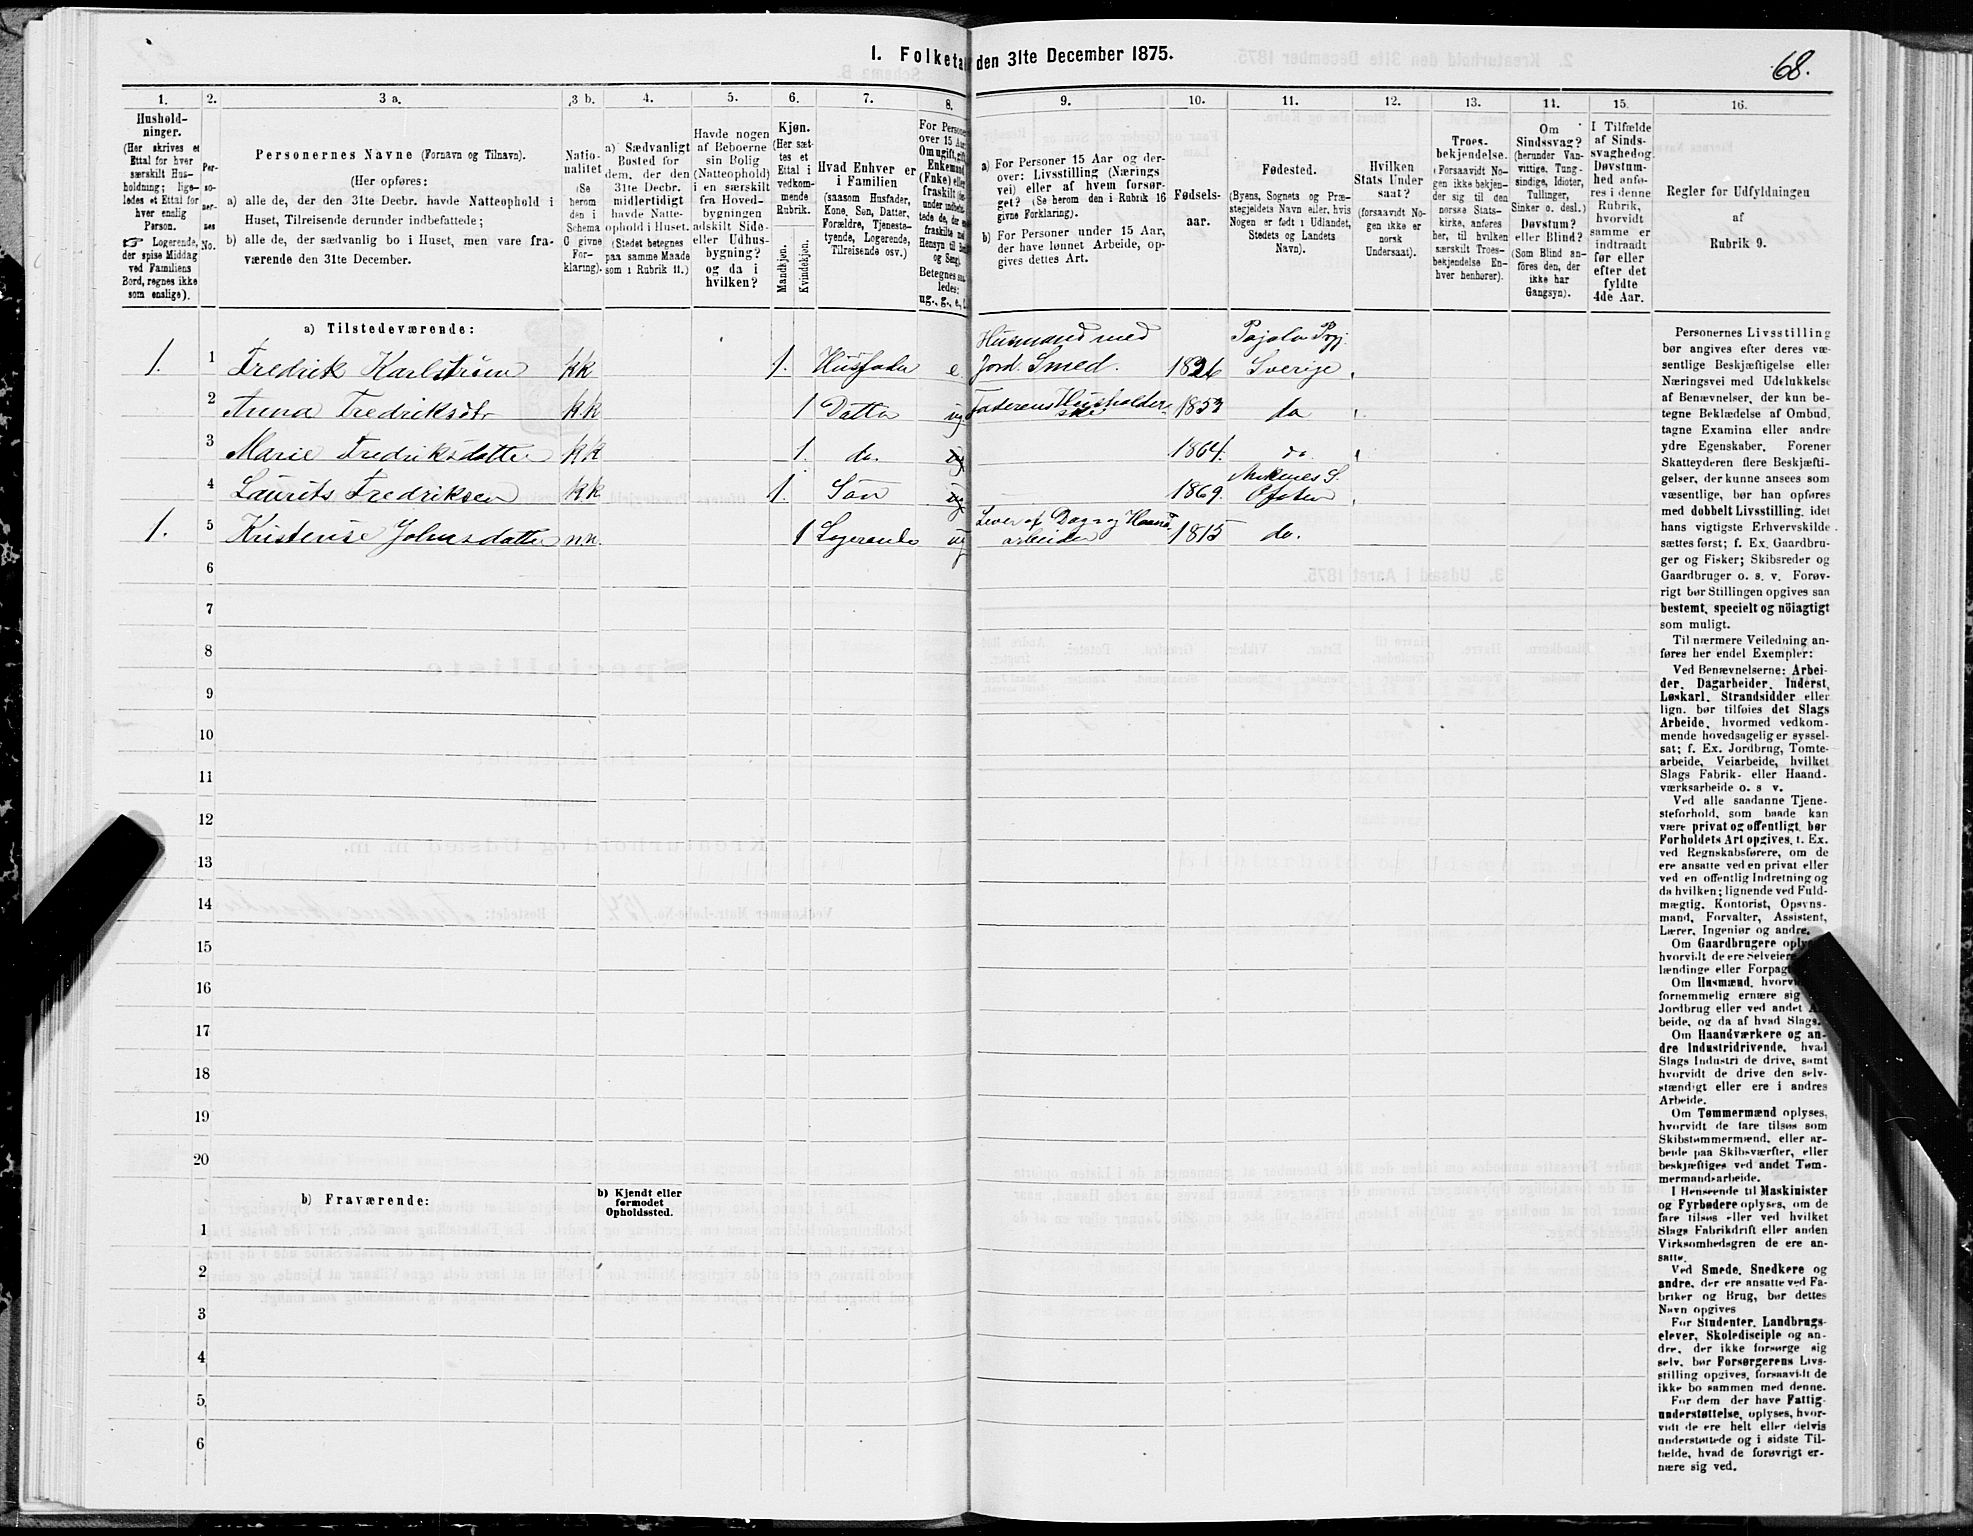 68.
1. Folketæ
den 31te December 1875.
1.
2.
3 a.
3 b.
4.
5.
6.
7.
8.
9.
10.
11.
12.
13.
14.
15.
16.
Hushold-
ninger.
(Her skrives et
Ettal for hver
særskilt Hus-
holdning; lige-
ledes et Ettal for
hver enslig
Person.
☞ Logerende,
der spise Middag
ved Familiens
Bord, regnes ikke
som enslige).
Per-
so-
ner-
nes
No.
Personernes Navne (Fornavn og Tilnavn).
(Her opføres:
a) alle de, der den 31te Decbr. havde Natteophold i
Huset, Tilreisende derunder indbefattede;
b) alle de, der sædvanlig bo i Huset, men vare fra-
værende den 31te December.
Natio-
nalitet
(Se
herom
den i
Schema
C givne
For-
klaring).
a) Sædvanligt
Bosted for
dem, der den
31te Decbr.
midlertidigt
havde Natte-
ophold i Huset.
(Stedet betegnes
paa samme Maade
som i Rubrik 11.)
Havde nogen
af Beboerne
sin Bolig
(Natteophold)
i en særskilt
fra Hoved-
bygningen
adskilt Side-
eller Udhus-
bygning?
og da i
hvilken?
Kjøn.
(Her sæt-
tes et
Ettal i
vedkom-
mende
Rubrik.
Mandkjøn.
Kvindekjøn.
Hvad Enhver er
i Familien
(saasom Husfader,
Kone, Søn, Datter,
Forældre, Tjeneste-
tyende, Logerende,
Tilreisende osv.)
For Persone
over 15 Aar
Om ugift, gift
Enkemand
(Enke) eller
fraskilt
Betegnes saa-
ledes:
ug., g., e.,
a) For Personer 15 Aar og der-
over: Livsstilling (Nærings
vei) eller af hvem forsør-
get? (Se herom den i Rubrik 16
givne Forklaring).
b) For Personer under 15 Aar,
der have lønnet Arbeide, op-
gives dettes Art.
Fødsels-
aar.
Fødested.
(Byens, Sognets og Præ-
stegjeldets Navn eller, hvis
Nogen er født i Udlandet,
Stedets og Landets
Navn).
Hvilken
Stats Under
saat?
(forsaavidt No-
gen ikke er
norsk
Undersaat).
Troes-
bekjendelse.
(Forsaavidt No-
gen ikke bekjen-
der sig til den
norske Stats-
kirke, anføres
her, til hvilken
særskilt Troes-
bekjendelse En-
hver henhører).
Om
Sindssvag?
(herunder Van-
vittige, Tung-
sindige, Idioter,
Tullinger,
Sinker o. desl.)
Døvstum?
eller Blind?
(Som Blind an-
føres den, der
ikke har
Gangsyn).
I Tilfælde
af Sinds-
svaghed og
Døvstum-
hed anfø-
res i denne
Rubrik,
hvorvidt
samme er
indtraadt
før eller
efter det
fyldte
4de Aar.
Regler for Udfyldningen
af
Rubrik 9.
a) Tilstedeværende:
1. 1 Fredrik Karlstrøm kk 1. Husfader e. Husmand med Jord. Smed. 1826 Pajala Prgj. Sverige
2 Anna Fredriksdtr k.k 1 Datter ug Faderens Husholderske 1853 do
3 Marie Fredriksdatter kk 1. do. ug 1864. do
4 Laurits Fredriksen k.k. 1. Søn ug 1869. Ankenes S. Ofoten
1. 5 Kristense Johnsdatter n.n. 1 Logerende ug Lever af Dag og Haand arbeider 1815 do.
6
7
8
9
10
11
12
13
14
15
16
17
18
19
20
b) Fraværende:
b) Kjendt eller
formodet
Opholdssted.
1
2
3
4
5
6
Personernes Livsstilling
bør angives efter deres væ-
sentlige Beskjæftigelse eller
Næringsvei med Udelukkelse
af Benævnelser, der kun be-
tegne Beklædelse af Ombud,
tagne Examina eller andre
ydre Egenskaber. Forener
Skatteyderen flere Beskjæfti-
gelser, der kunne ansees som
væsentlige, bør han opføres
med dobbelt Livsstilling, idet
hans vigtigste Erhvervskilde
sættes først; f. Ex. Gaardbru-
ger og Fisker; Skibsreder og
Gaardbruger o. s. v. Forøv-
rigt bør Stillingen opgives saa
bestemt, specielt og nöiagtigt
som muligt.
Til nærmere Veiledning an-
føres her endel Exempler:
Ved Benævnelserne: Arbei-
der, Dagarbeider, Inderst,
Løskarl, Strandsidder eller
lign. bør tilføies det Slags
Arbeide, hvormed vedkom-
mende hovedsagelig er syssel-
sat; f. Ex. Jordbrug, Tomte-
arbeide, Veiarbeide, hvilket
Slags Fabrik- eller Haand-
værksarbeide o. s v.
Ved alle saadanne Tjene-
steforhold, som baade kan
være privat og offentligt, bør
Forholdets Art opgives, t. Ex.
ved Regnskabsførere, om de
ere ansatte ved en privat eller
ved en offentlig Indretning og
da hvilken; lignende ved Fuld-
mægtig, Kontorist, Opsyns-
mand, Forvalter, Assistent,
Lærer, Ingeniør og andre.
Om Gaardbrugere oply
hvorvidt de ere Selveiere
lændinge eller Forpag
Om Husmænd, hvorv
fornemmelig ernære sig
Jordbrug eller ved andet A
beide, og da af hvad Slags.
Om Haandværkere og an-
dre Industridrivende, hvad
Slags Industri de drive, samt
hvorvidt de drive den selv-
stændigt eller ere i andres
Arbeide.
Om Tømmermænd oplyses,
hvorvidt de fare tilsøs som
Skibstømmermænd, eller ar-
beide paa Skibsværfter, eller
beskjæftiges ved andet Tøm-
mermandsarbeide.
I Henseende til Maskinister
og Fyrbødere oplyses, om de
fare tilsøs eller ved hvilket
Slags Fabrikdrift eller anden
Virksomhedsgren de ere an-
satte.
Ved Smede, Snedkere og
andre, der ere ansatte ved Fa-
briker og Brug, bør dettes
Navn opgives
For Studenter, Landbrugs-
elever, Skoledisciple og an-
dre, der ikke forsørge sig
selv, bør Forsørgerens Livs-
stilling opgives, forsaavidt de
ikke bo sammen med denne.
For dem der have Fattig-
understøttelse, oplyses, hvor-
vidt de ere helt eller delvis
understøttede og i sidste Til-
fælde, hvad de forøvrigt er-
nære sig ved.